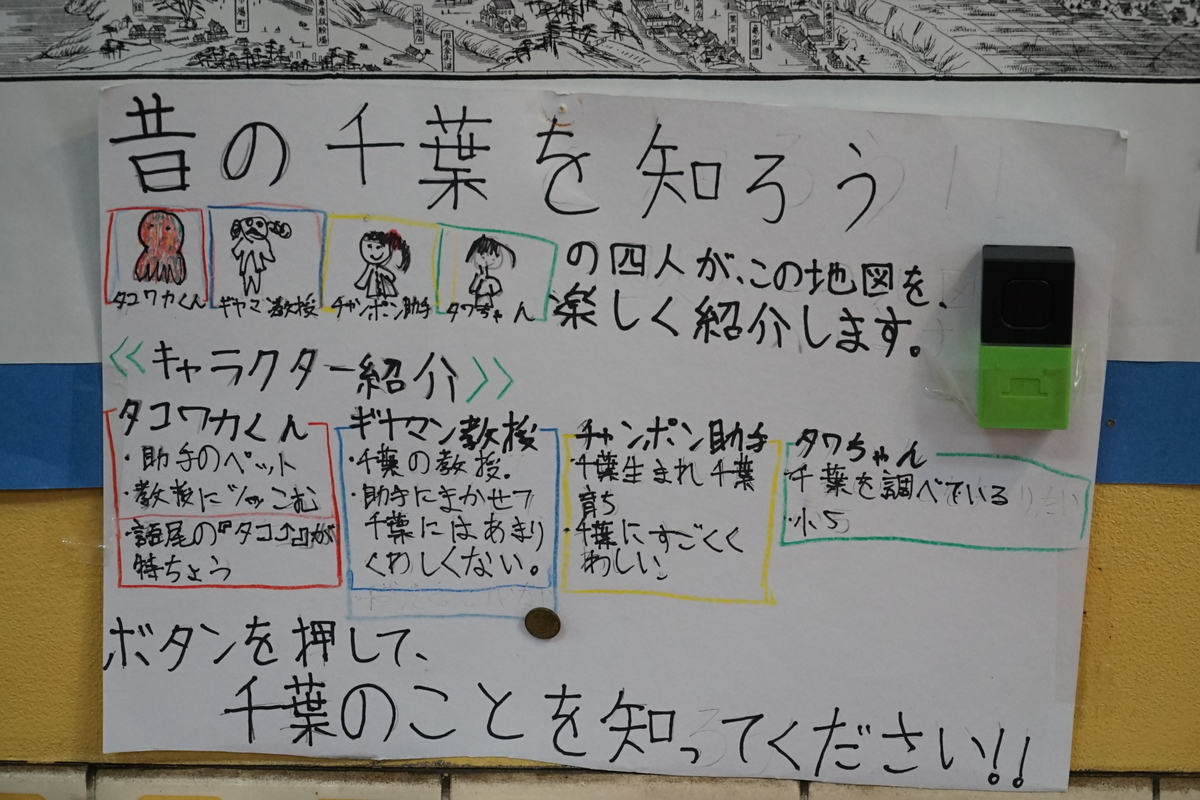 昔の千葉を知ろう
タコワカくん ギヤマン教授 チャンポン助手 タワちゃん
の四人が、この地図を、
楽しく紹介します。
《キャラクター紹介》
タコワカくん
・助手のペット
・教授にツッこむ
・語尾の『タコ↑』が
特ちょう
ギヤマン教授
・千葉の教授。
・助手にまかせて
千葉にはあまり
くわしくない。
チャンポン助手
・千葉生まれ千葉
育ち
・千葉にすごくく
わしい。
タワちゃん
・千葉を調べている
・小5
ボタンを押して、
千葉のことを知ってください!!